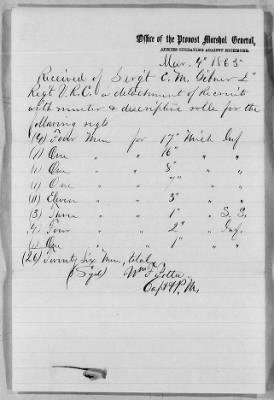 Office of the Provost Marshal General,
ARMIES OPERATING AGAINST RICHMOND,
Mar. 4" 1865
Received of Sergt C. M. Gilmer 2"
Regt V.R.C. a detachment of Recruits
with muster & descriptive rolls for the
following regts
(4) Four Men for 17" Mich Inf
(1) One " " 16" " "
(1) One " " 8" " "
(1) One " " 7" " "
(11) Eleven " " 5" " "
(3) Three " " 1" " S. S.
(4) Four " " 2" " Inf.
(1) One " " 1" " "
(26) Twenty Six Men, total
(Sgd) Wm F
Capt & P. M.